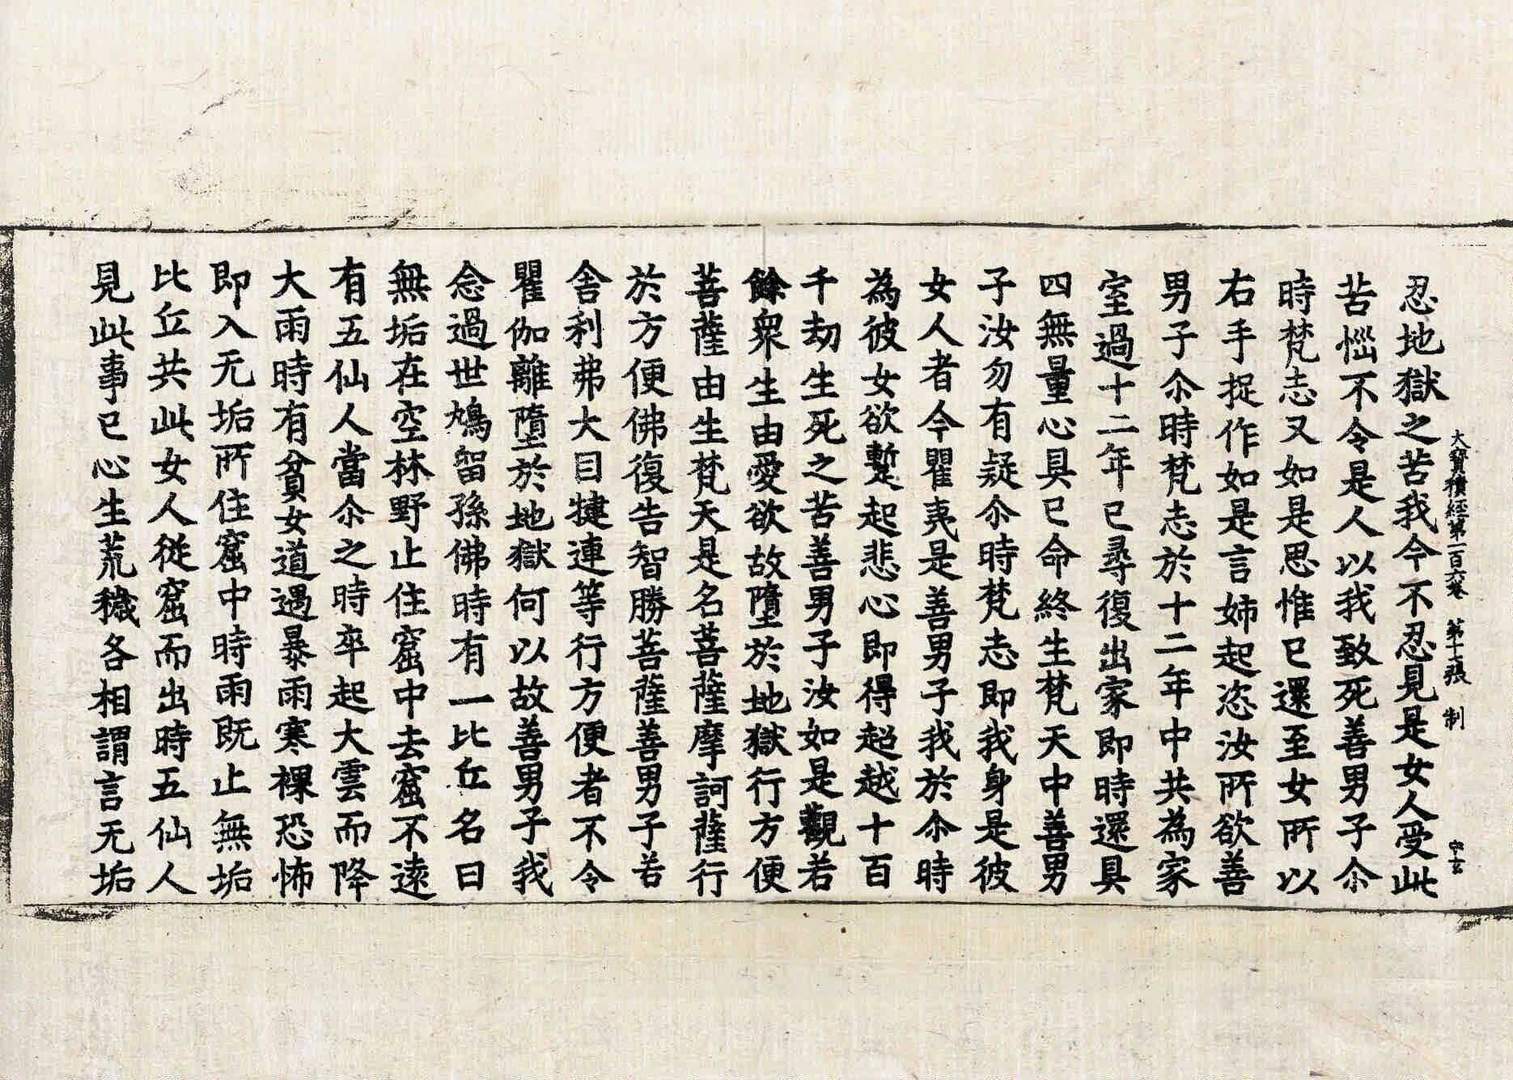 大寶積經第一百六卷 第十一張 制
忍地獄之苦我今不忍見是女人受此
苦惱不令是人以我致死善男子尒
時梵志又如是思惟已還至女所以
右手捉作如是言姊起恣汝所欲善
男子尒時梵志於十二年中共為家
室過十二年已尋復出家即時還具
四無量心具已命終生梵天中善男
子汝勿有疑尒時梵志即我身是彼
女人者今瞿夷是善男子我於尒時
為彼女欲蹔起悲心即得超越十百
千劫生死之苦善男子汝如是觀若
餘衆生由愛欲故墮於地獄行方便
菩薩由生梵天是名菩薩摩訶薩行
於方便佛復告智勝菩薩善男子若
舍利弗大目犍連等行方便者不令
瞿伽離墮於地獄何以故善男子我
念過世鳩留孫佛時有一比丘名曰
無垢在空林野止住窟中去窟不遠
有五仙人當尒之時卒起大雲而降
大雨時有貧女道遇暴雨寒裸恐怖
即入无垢所住窟中時雨既止無垢
比丘共此女人從窟而出時五仙人
見此事已心生荒穢各相謂言无垢